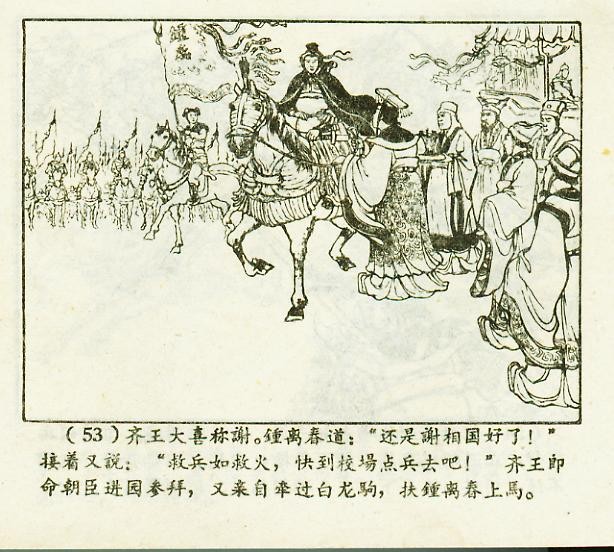 鍾离
（53）齐王大喜称謝。鍾离春道：“还是謝相国好了！”
接着又説：“救兵如救火，快到校場点兵去吧！”齐王即
命朝臣进园参拜，又亲自牵过白龙駒，扶鍾离春上馬。